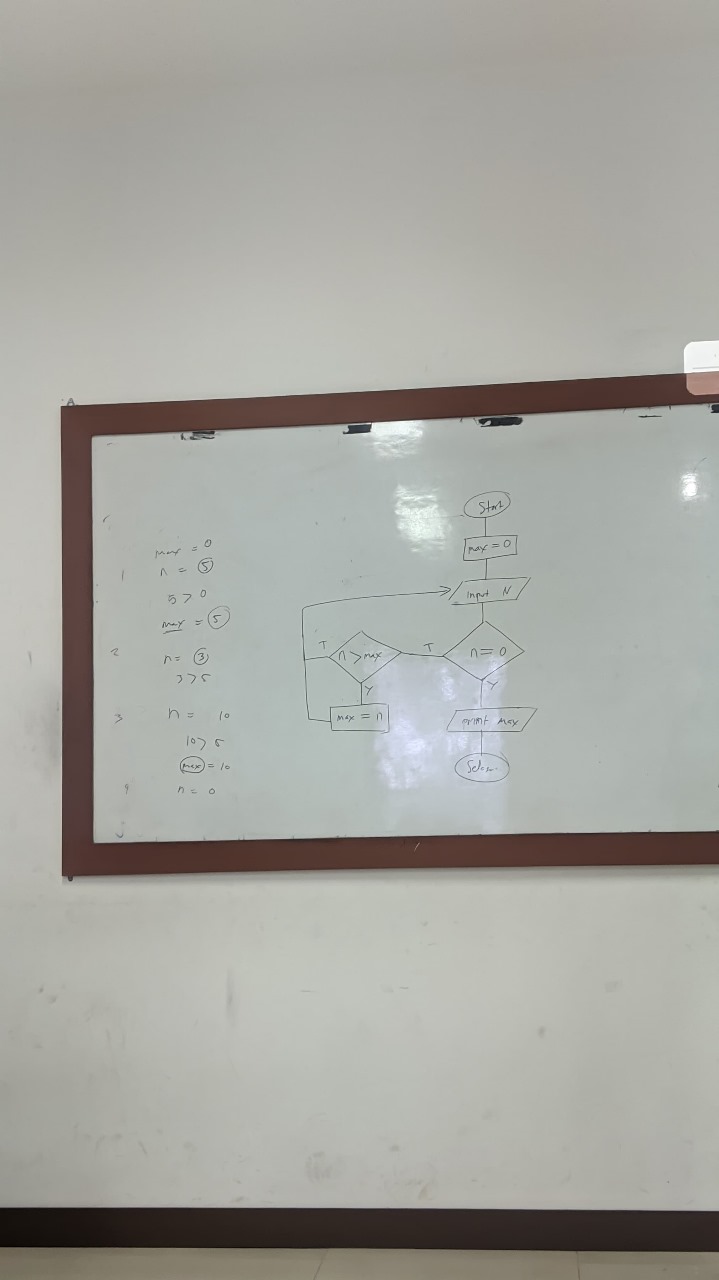 max = 0
1 n = 5
5 > 0
max = 5
2 n = 3
3 > 5
3 n = 10
10 > 5
max = 10
4 n = 0
Start
max = 0
input N
n = 0
T
Y
n > max
T
Y
max = n
print max